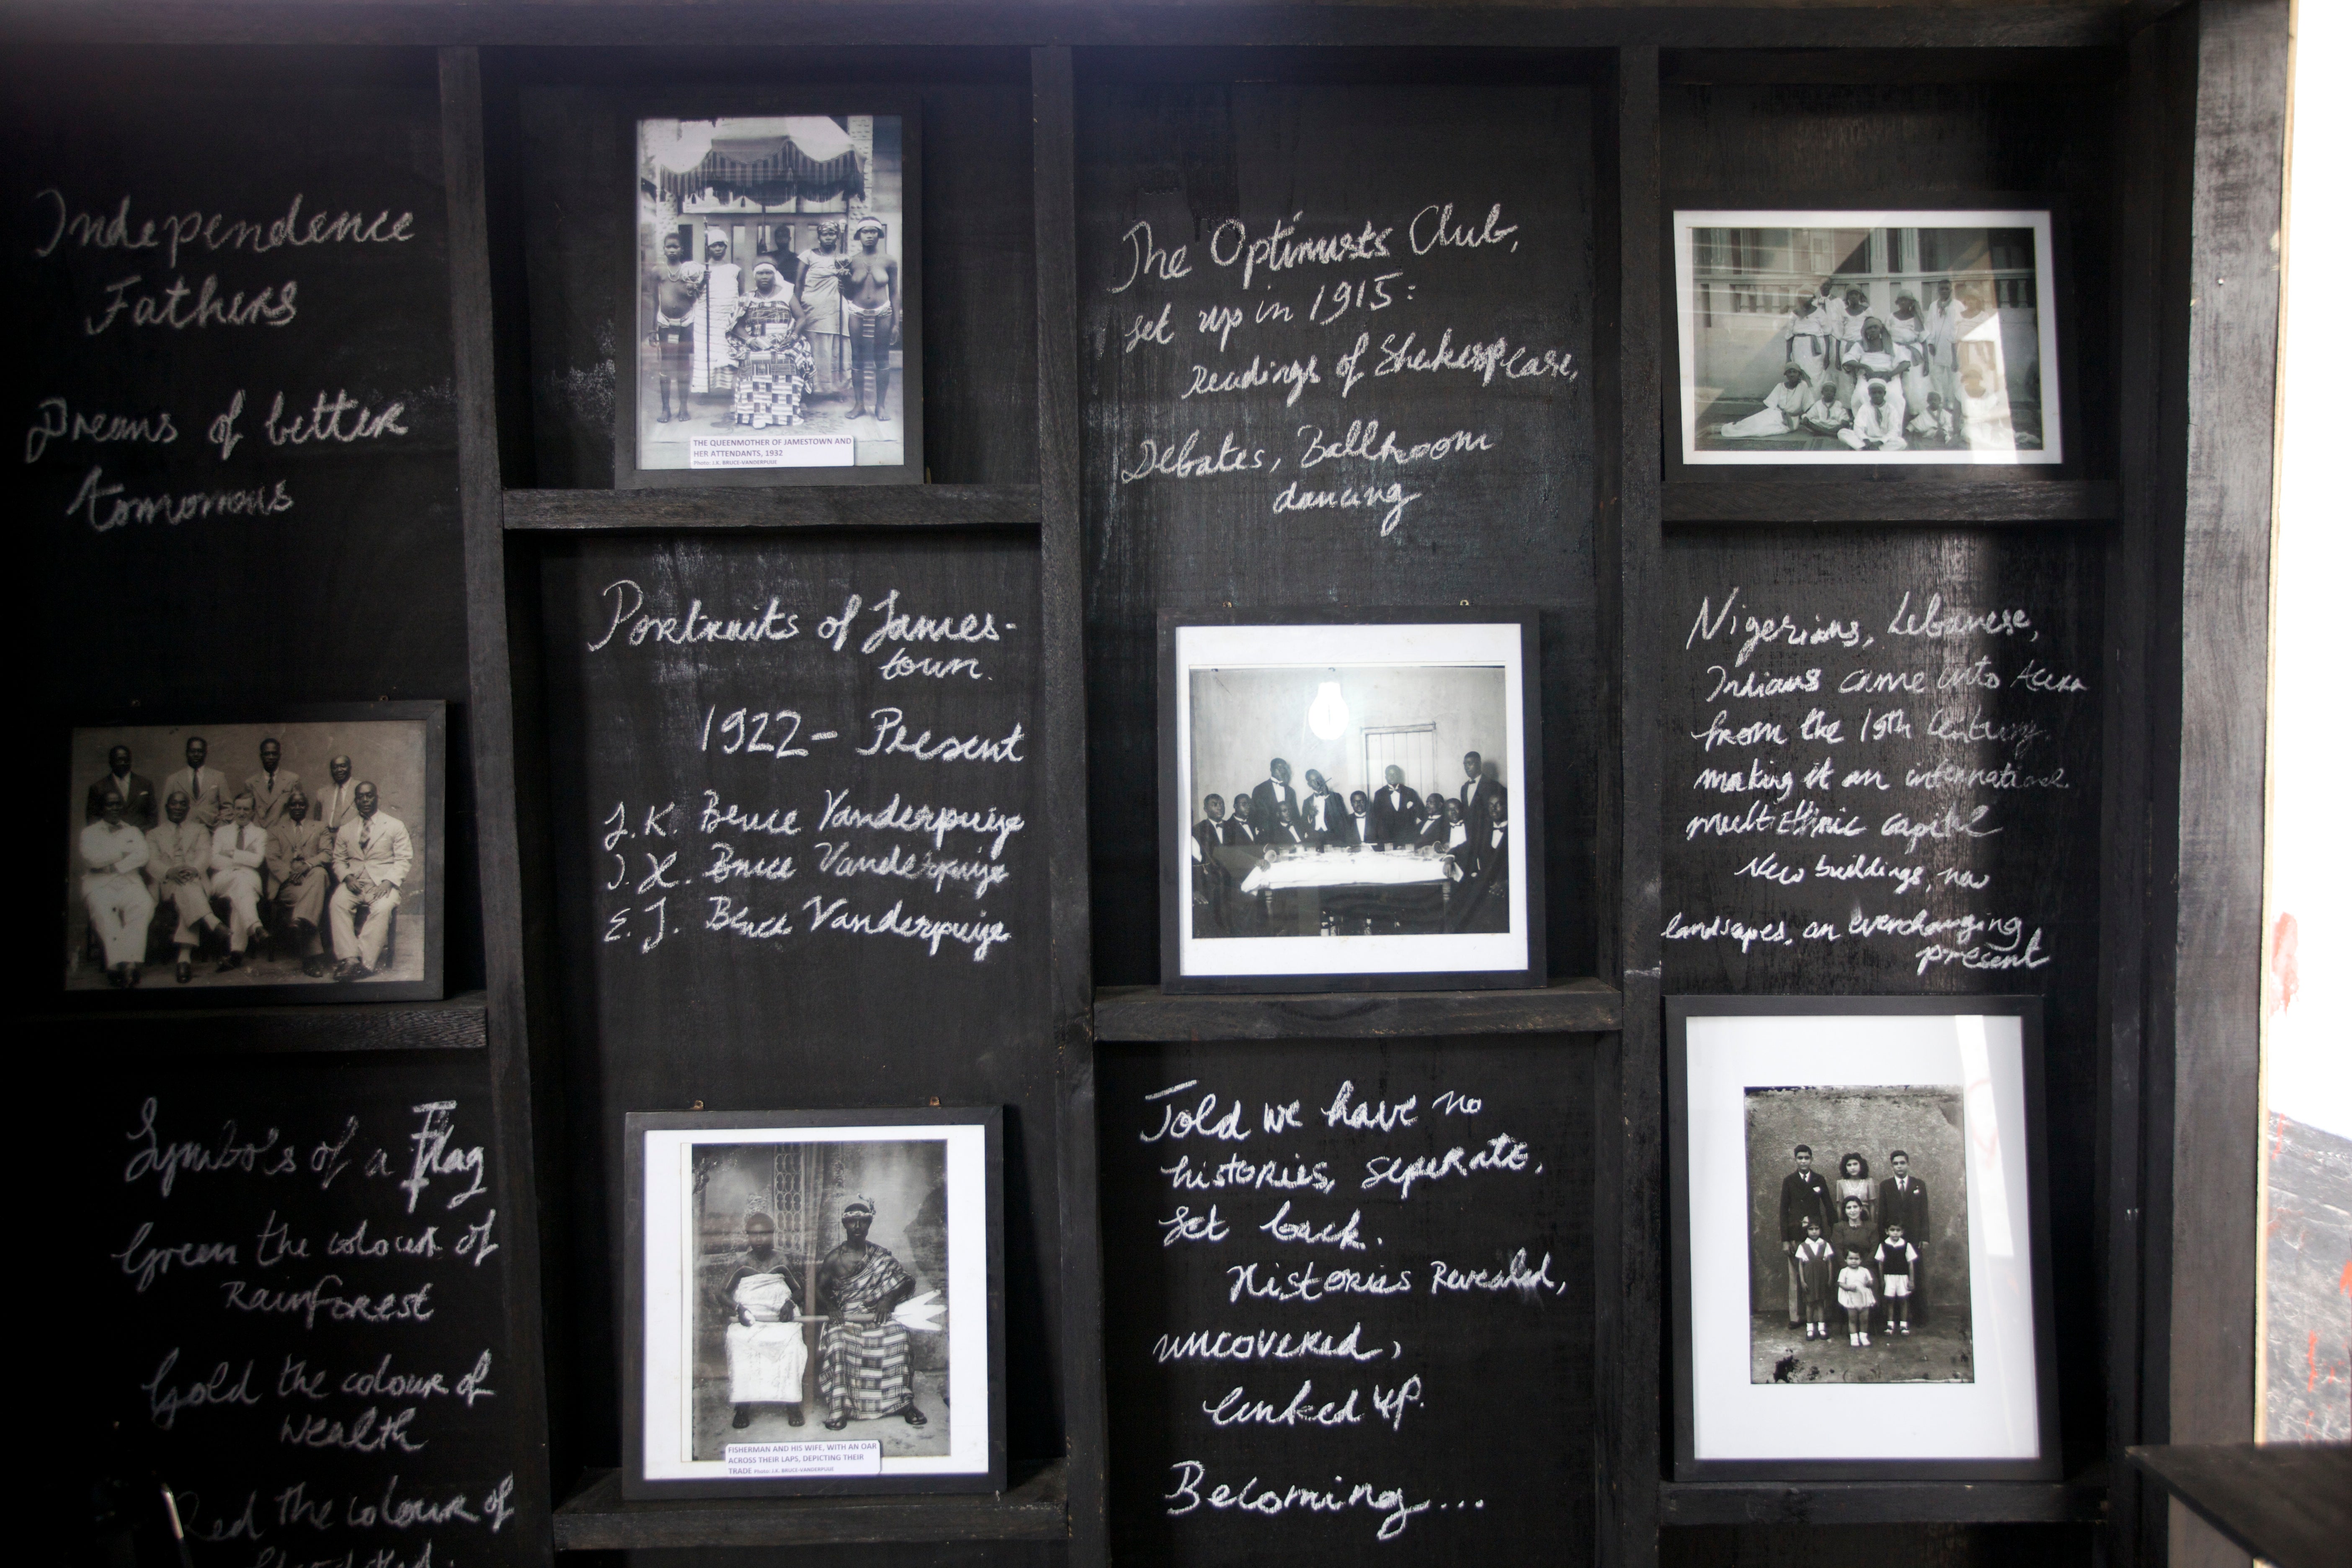 Independence
Fathers
Dreams of better
tomorrows
Symbols of a Flag
Green the colour of
Rainforest
Gold the colour of
Wealth
Red the colour of
THE QUEENMOTHER OF JAMESTOWN AND
HER ATTENDANTS, 1932
Photo: J.K. BRUCE-VANDERPUIJE
Portraits of James-
town.
1922- Present
J.K. Bruce Vanderpuije
I.H. Bruce Vanderpuije
E.J. Bruce Vanderpuije
FISHERMAN AND HIS WIFE, WITH AN OAR
ACROSS THEIR LAPS, DEPICTING THEIR
TRADE Photo: J.K. BRUCE-VANDERPUIJE
The Optimists Club,
set up in 1915:
Readings of Shakespeare,
Debates, Ballroom
dancing
Told we have no
histories, seperate,
set back.
Histories Revealed,
uncovered,
linked up.
Becoming...
Nigerians, Lebanese,
Indians came into Accra
from the 19th Century,
making it an international
multiEthnic capital
New buildings, new
landscapes, an everchanging
present